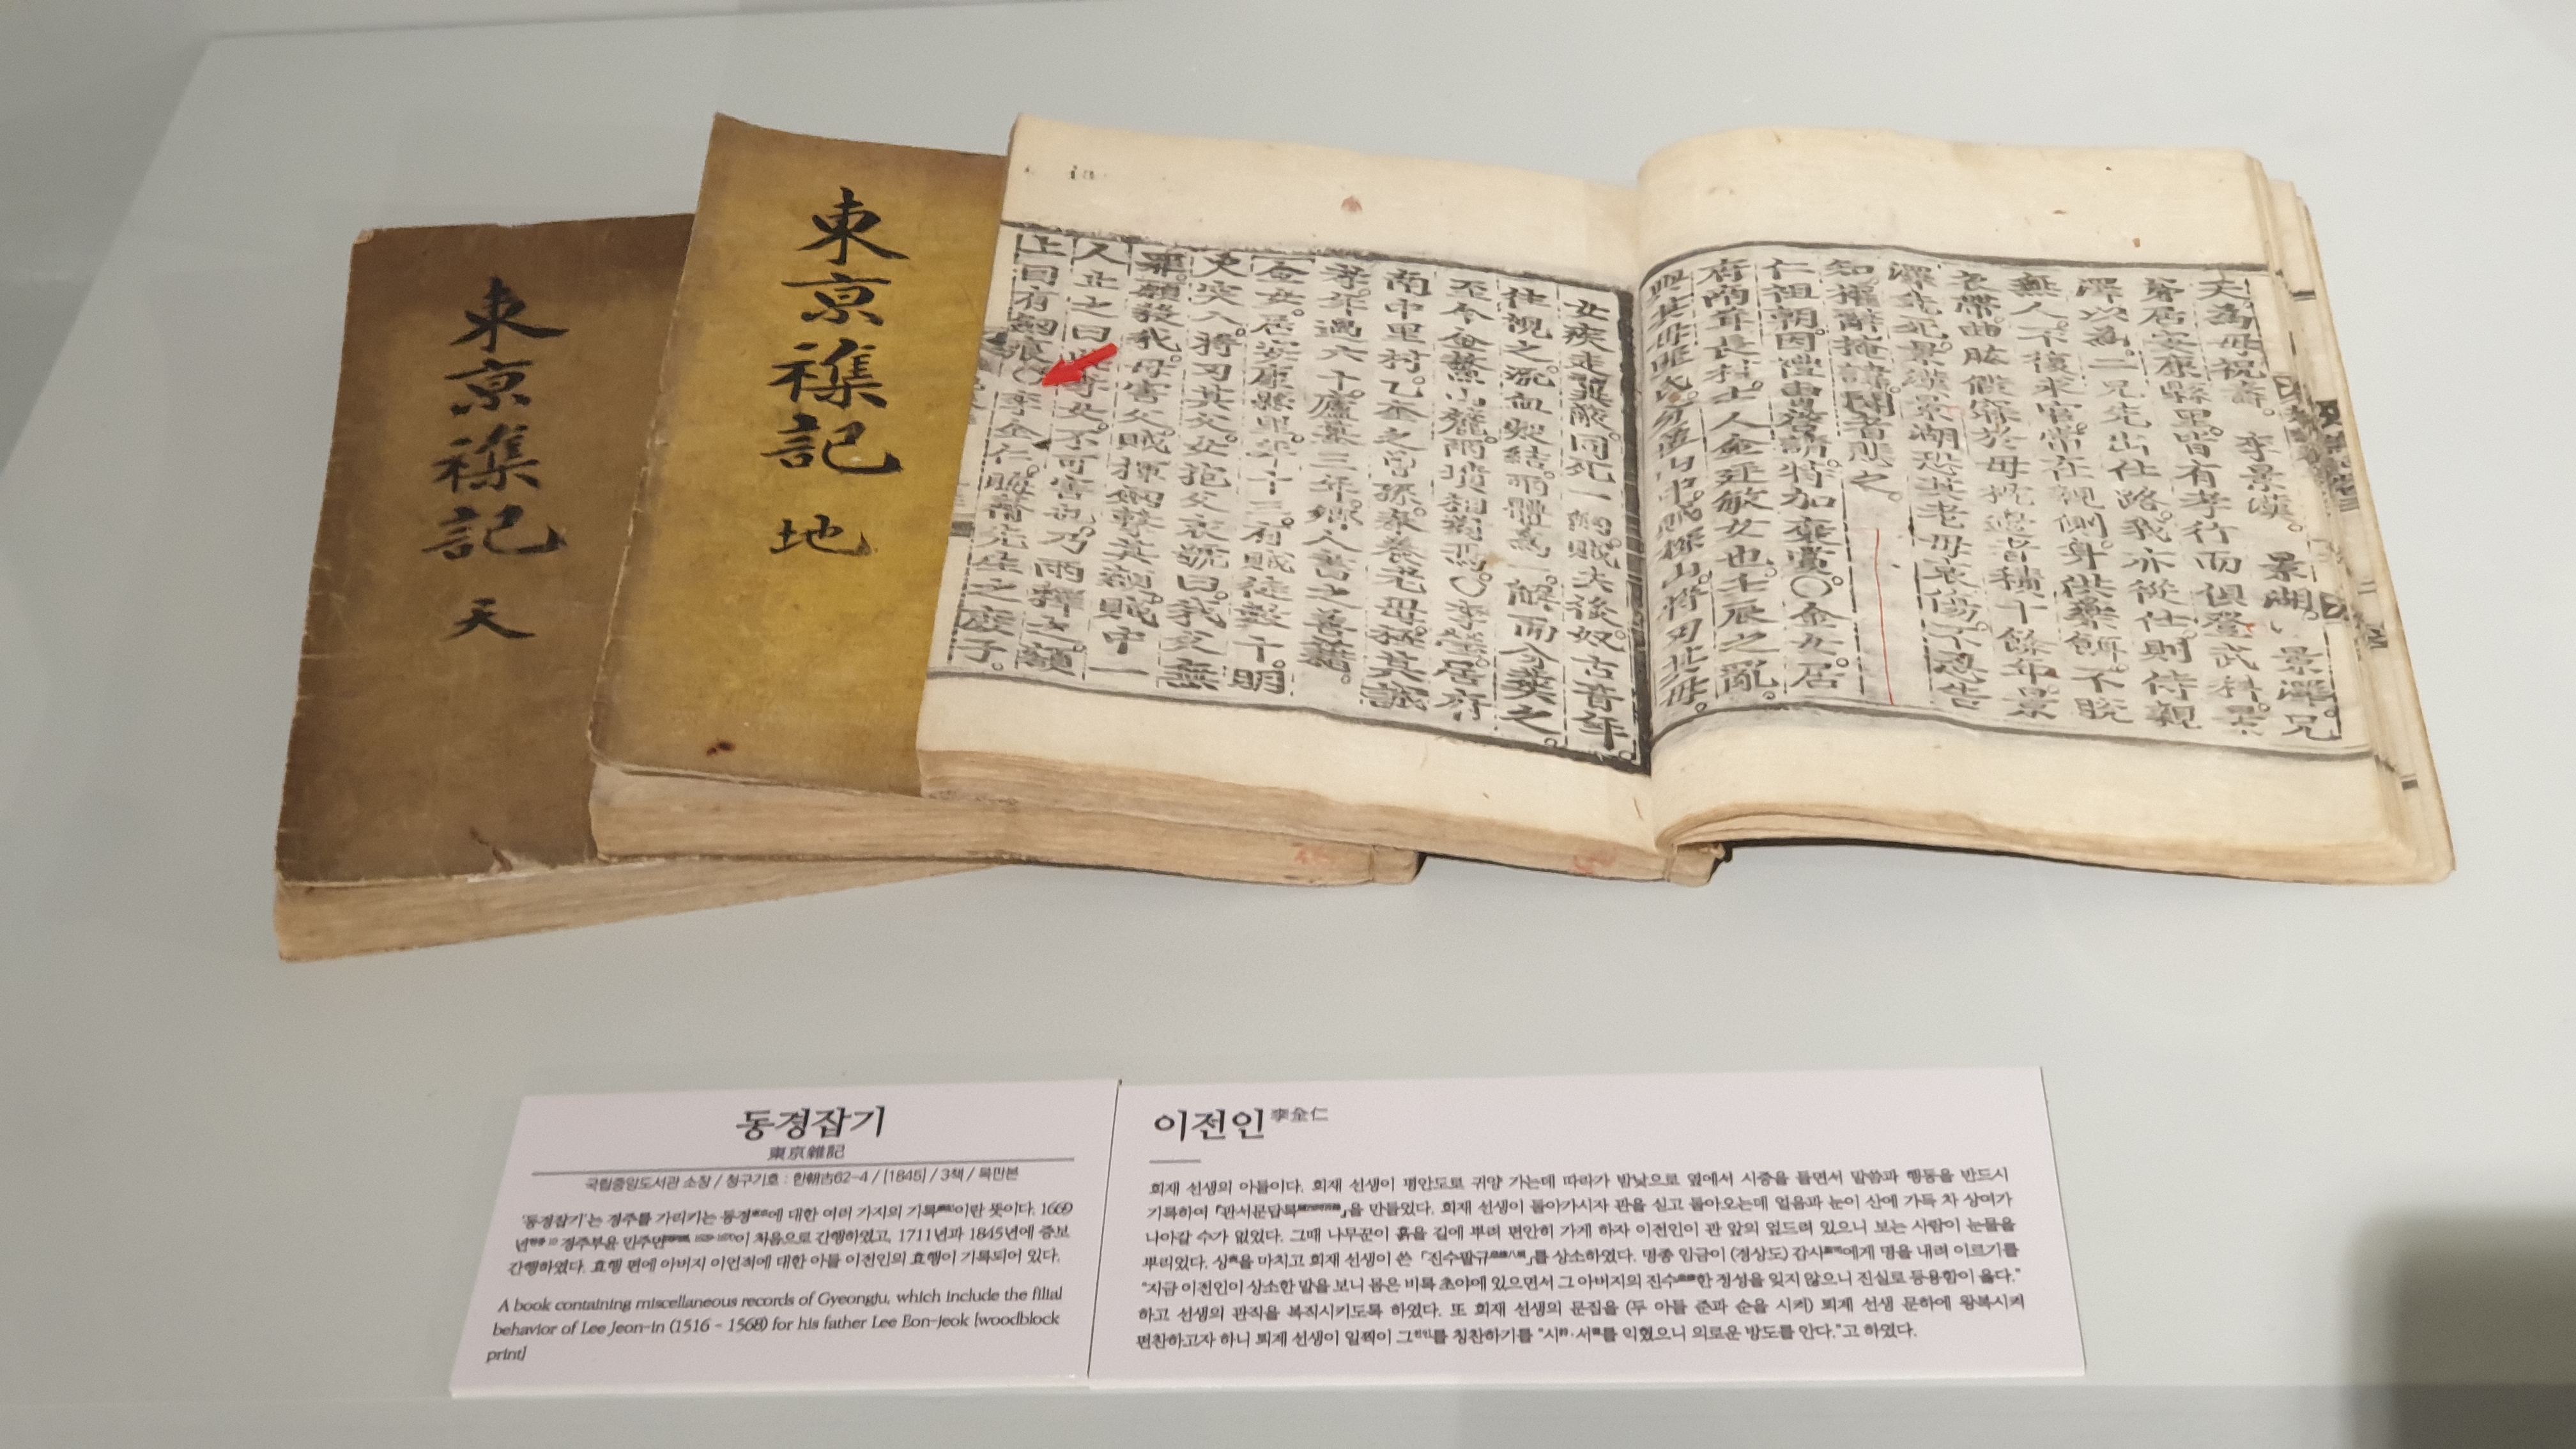 東京襍記 天
東京襍記 地
夫為母祝壽。李景漢。景湖。景澤。兄
弟居安康縣里皆有孝行而俱登武科。景
澤以為二兄先出仕路。我亦從仕則侍親
無人。不復求官。常在親側。身供藥餌。不脫
衣帶。曲肱假寐於母枕邊者積十餘年。景
澤先死。景漢景湖恐其老母哀傷。不忍告
知。權辭掩諱。聞者悲之。
仁祖朝。因禮曹啓請。特加褒獎。〇金女居
府南茸長村。士人金廷敏女也。壬辰之亂。
與其母 山中。賊探山。將刃其母。
女疾走翼蔽。同死一劒。賊去後。奴古音年。
往視之。流血凝結。兩體為一。解而合葬之。
至今金鰲山麓。兩墳相對焉。〇李 居府
南中里村。之曾孫。養老母。極其誠
孝。年過六十。廬墓三年。鄉人書之善籍。
金女。居安康縣。年十三。有賊徒數十。明
火突入。將刃其父。女抱父衣號曰。我父無
罪。願殺我。毋害父。賊揮劒擊其額。賊中一
人止之曰。此孝女。不可害也。乃兩釋之。額
上曰有劒痕。〇李全仁。晦齋先生之庶子。
동경잡기
東京雜記
국립중앙도서관 소장 / 청구기호 : 한朝古62-4 / [1845] / 3책 / 목판본
'동경잡기'는 경주를 가리키는 동경에 대한 여러 가지의 기록이란 뜻이다. 1669
년 경주부윤 민주면이 처음으로 간행하였고, 1711년과 1845년에 증보
간행하였다. 효행 편에 아버지 이언적에 대한 아들 이전인의 효행이 기록되어 있다.
A book containing miscellaneous records of Gyeongju, which include the filial
behavior of Lee Jeon-in (1516 - 1568) for his father Lee Eon-jeok [woodblock
print]
이전인 李全仁
회재 선생의 아들이다. 회재 선생이 평안도로 귀양 가는데 따라가 밤낮으로 옆에서 시중을 들면서 말씀과 행동을 반드시
기록하여 『관서문답록』을 만들었다. 회재 선생이 돌아가시자 관을 싣고 돌아오는데 얼음과 눈이 산에 가득 차 상여가
나아갈 수가 없었다. 그때 나무꾼이 흙을 길에 뿌려 편안히 가게 하자 이전인이 관 앞의 엎드려 있으니 보는 사람이 눈물을
뿌리었다. 상을 마치고 회재 선생이 쓴 「진수팔규」를 상소하였다. 명종 임금이 (경상도) 감사에게 명을 내려 이르기를
“지금 이전인이 상소한 말을 보니 몸은 비록 초야에 있으면서 그 아버지의 진수한 정성을 잊지 않으니 진실로 등용함이 옳다.”
하고 선생의 관직을 복직시키도록 하였다. 또 회재 선생의 문집을 (두 아들 준과 순을 시켜) 퇴재 선생 문하에 왕복시켜
편찬하고자 하니 퇴재 선생이 일찍이 그를 칭찬하기를 “시·서를 익혔으니 의로운 방도를 안다.”고 하였다.